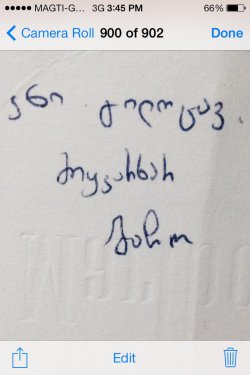 MAGTI-G... 3G 3:45 PM 66%
Camera Roll 900 of 902 Done
ანი გილოცავ.
მიყვარხარ
Edit